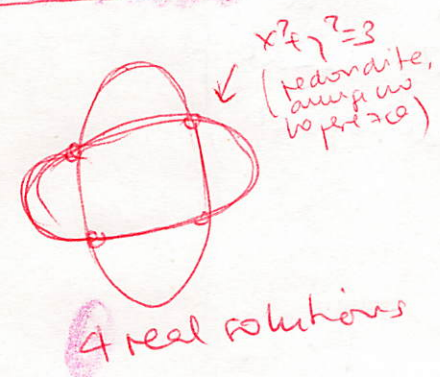 x²+y²=3
(redondita,
aunque no
lo parezca)
4 real solutions